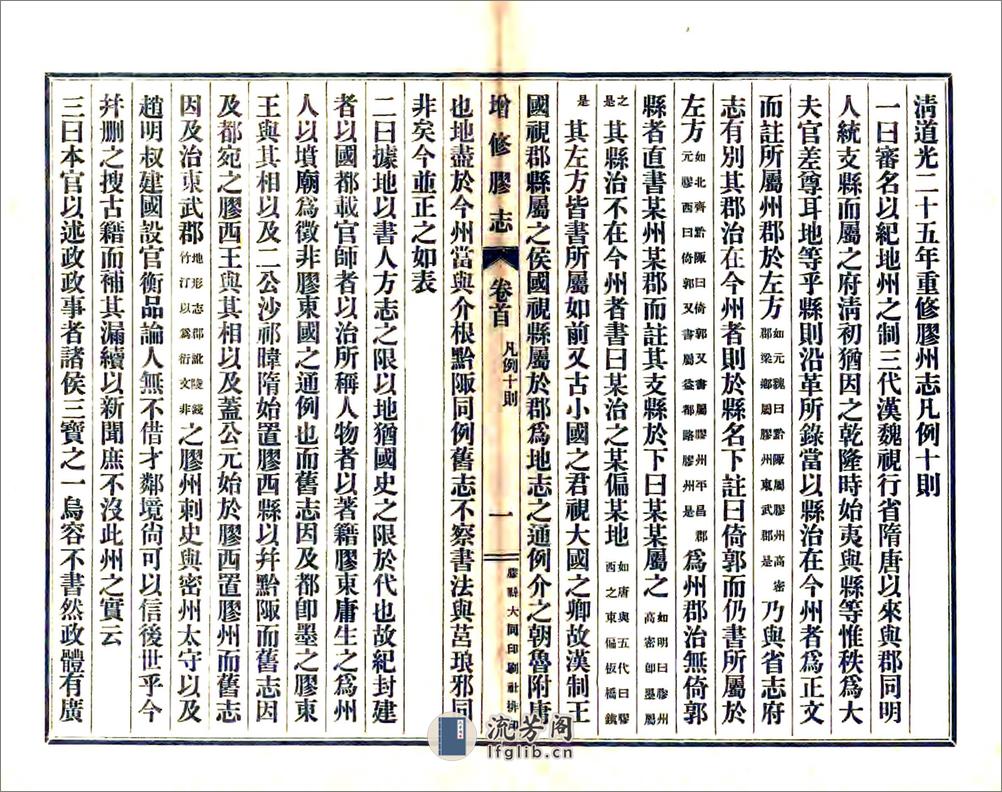 清道光二十五年重修膠州志凡例十則
一曰審名以紀地州之制三代漢魏視行省隋唐以來與郡同明
人統支縣而屬之府清初猶因之乾隆時始夷與縣等惟秩爲大
夫官差尊耳地等乎縣則沿革所錄當以縣治在今州者爲正文
而註所屬州郡於左方如元魏曰黔陬屬膠州高密郡梁鄉屬膠州東武郡是乃與省志府
志有別其郡治在今州者則於縣名下註曰倚郭而仍書所屬於
左方如北齊黔陬曰倚郭又書屬膠州平昌郡元膠西曰倚郭又書屬益都路膠州是爲州郡治無倚郭
縣者直書某州某郡而註其支縣於下曰某某屬之如明曰膠州高密即墨屬
之是其縣治不在今州者書曰某治之某偏某地如唐與五代曰膠西之東偏板橋鎮
是其左方皆書所屬如前又古小國之君視大國之卿故漢制王
國視郡縣屬之侯國視縣屬於郡爲地志之通例介之朝魯附唐
增修膠志 卷首 凡例十則 一 膠縣大同印刷社排印
也地盡於今州當與介根黔陬同例舊志不察書法與莒琅邪同
非矣今並正之如表
二曰據地以書人方志之限以地猶國史之限於代也故紀封建
者以國都載官師者以治所稱人物者以著籍膠東庸生之爲州
人以墳廟爲徵非膠東國之通例也而舊志因及都卽墨之膠東
王與其相以及二公沙祁暐隋始置膠西縣以幷黔陬而舊志因
及都宛之膠西王與其相以及蓋公元始於膠西置膠州而舊志
因及治東武郡地形志郡訛陵錢竹汀以爲衍文非之膠州刺史與密州太守以及
趙明叔建國設官衡品論人無不借才鄰境尚可以信後世乎今
幷删之搜古籍而補其漏續以新聞庶不沒此州之實云
三曰本官以述政政事者諸侯三寶之一烏容不書然政體有廣
流芳阁